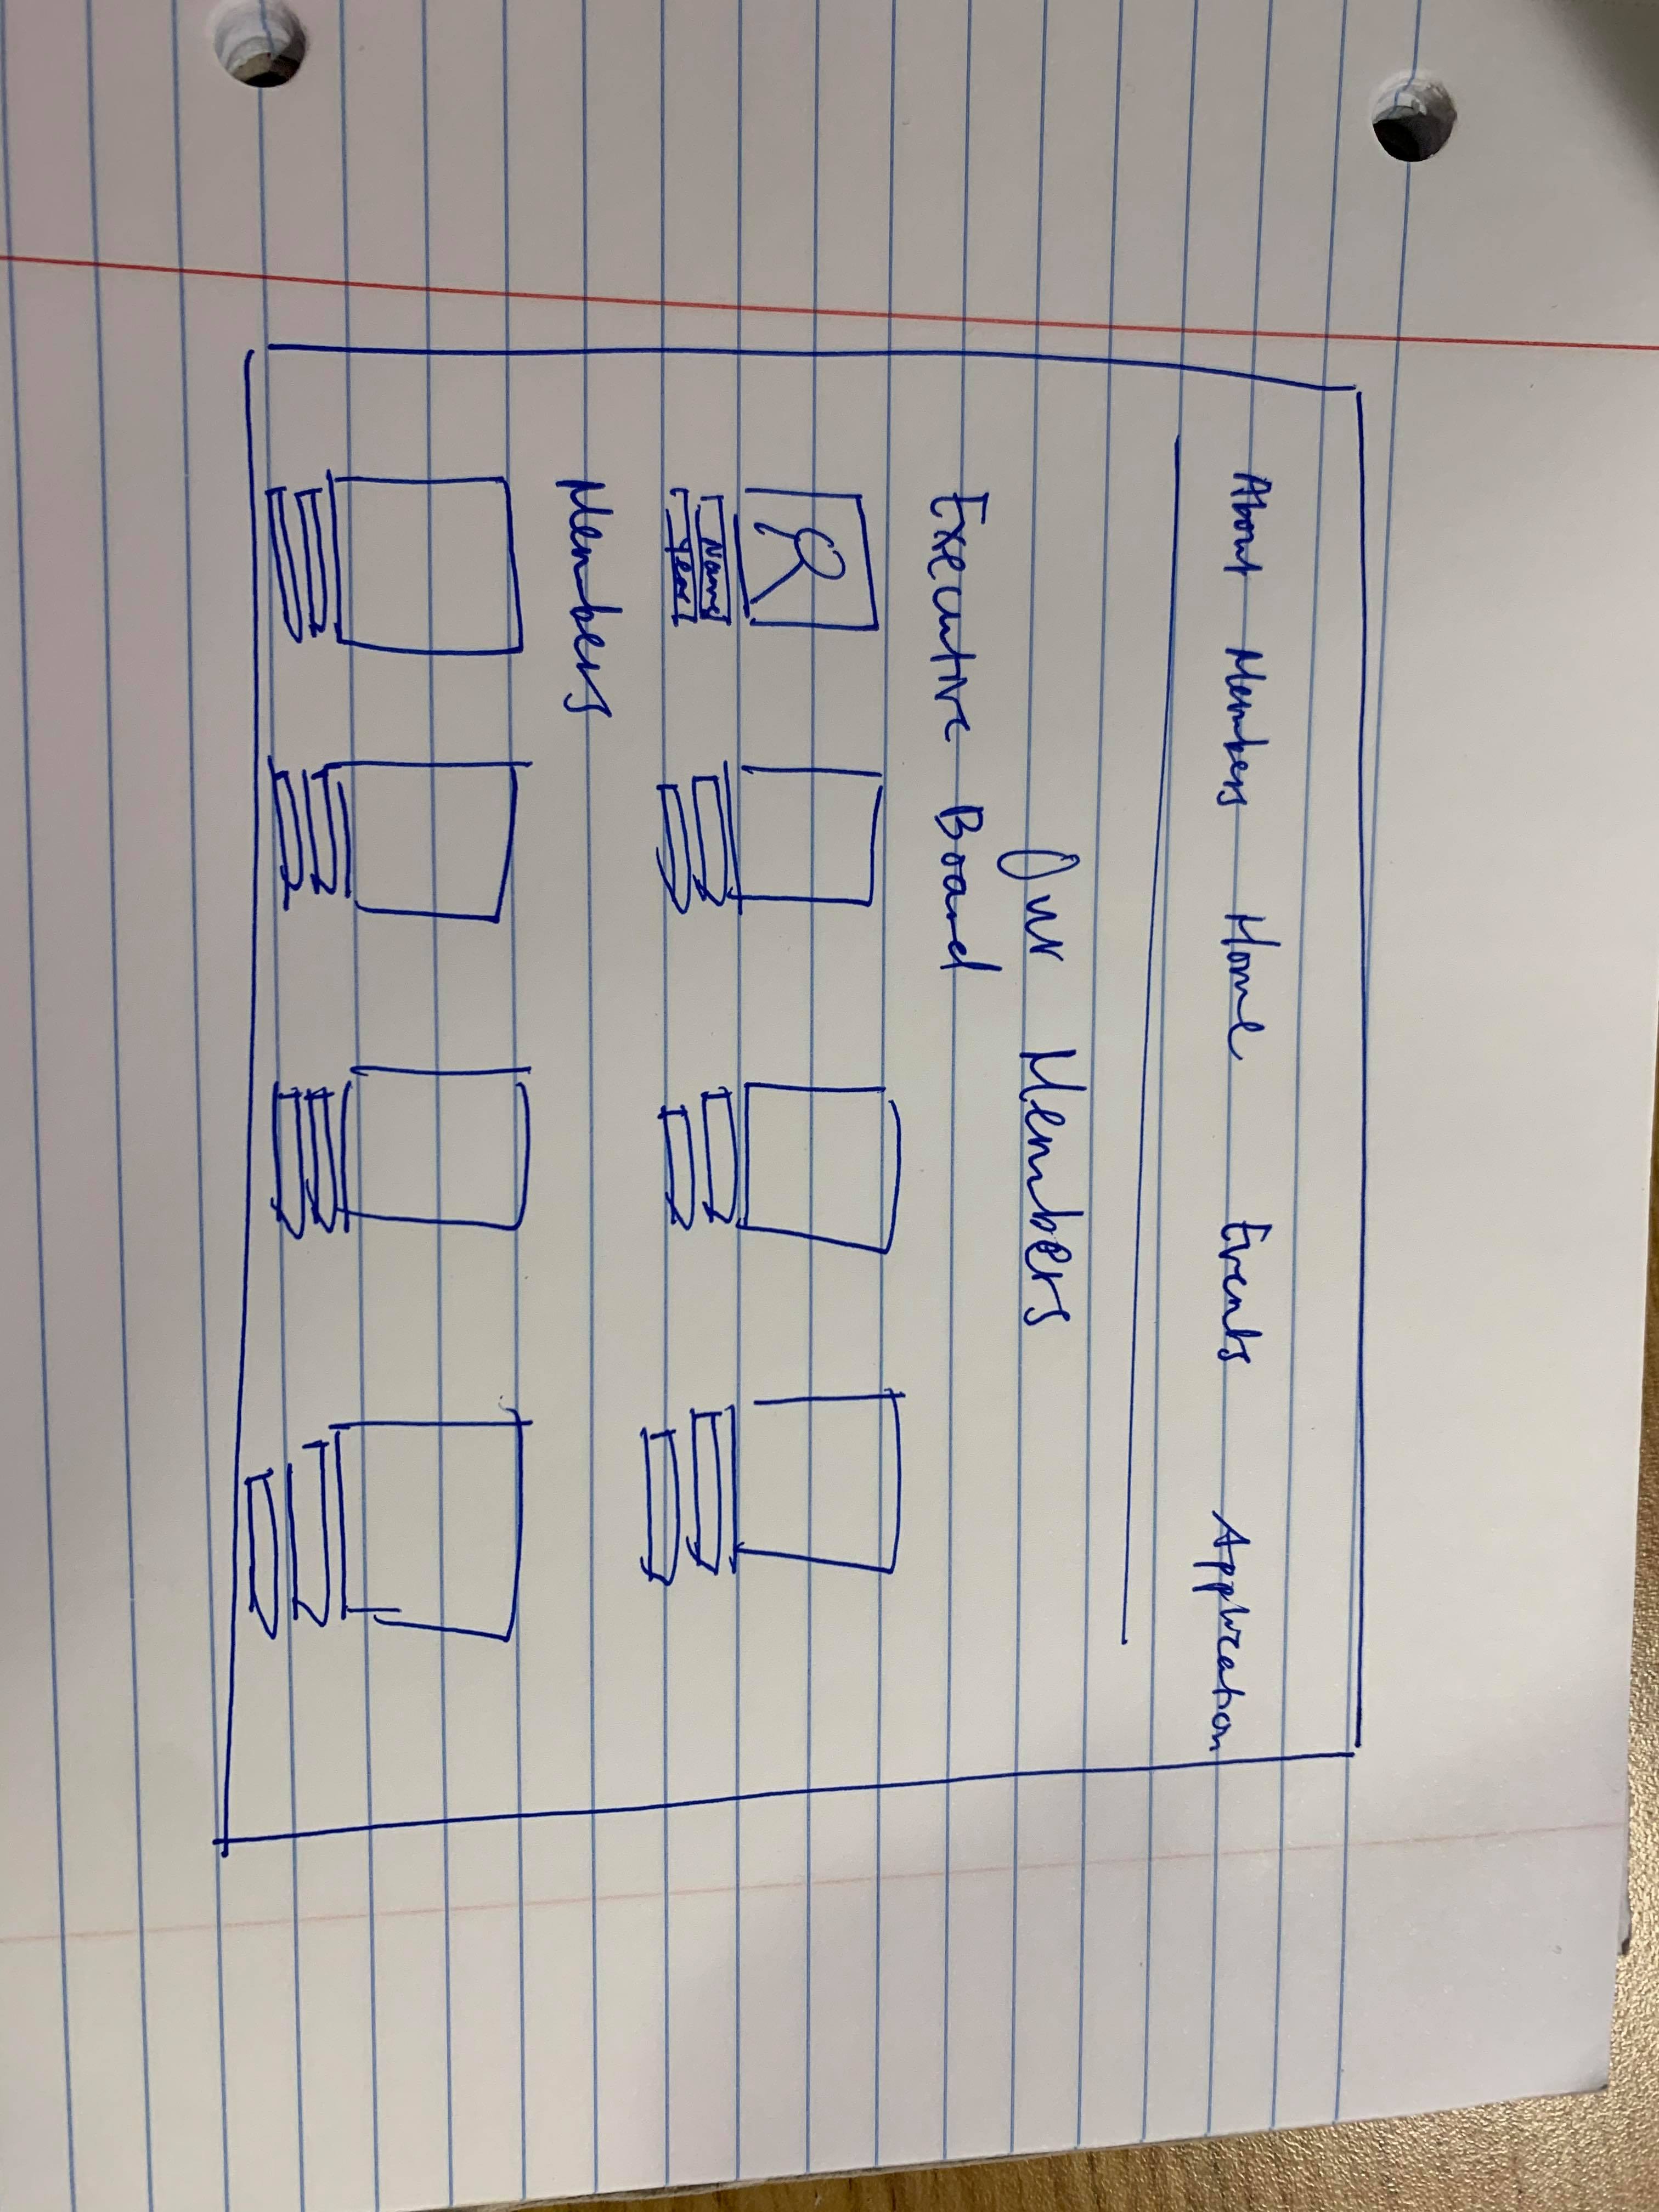 About Members Home Events Application
Our Members
Executive Board
Name
Year
Members